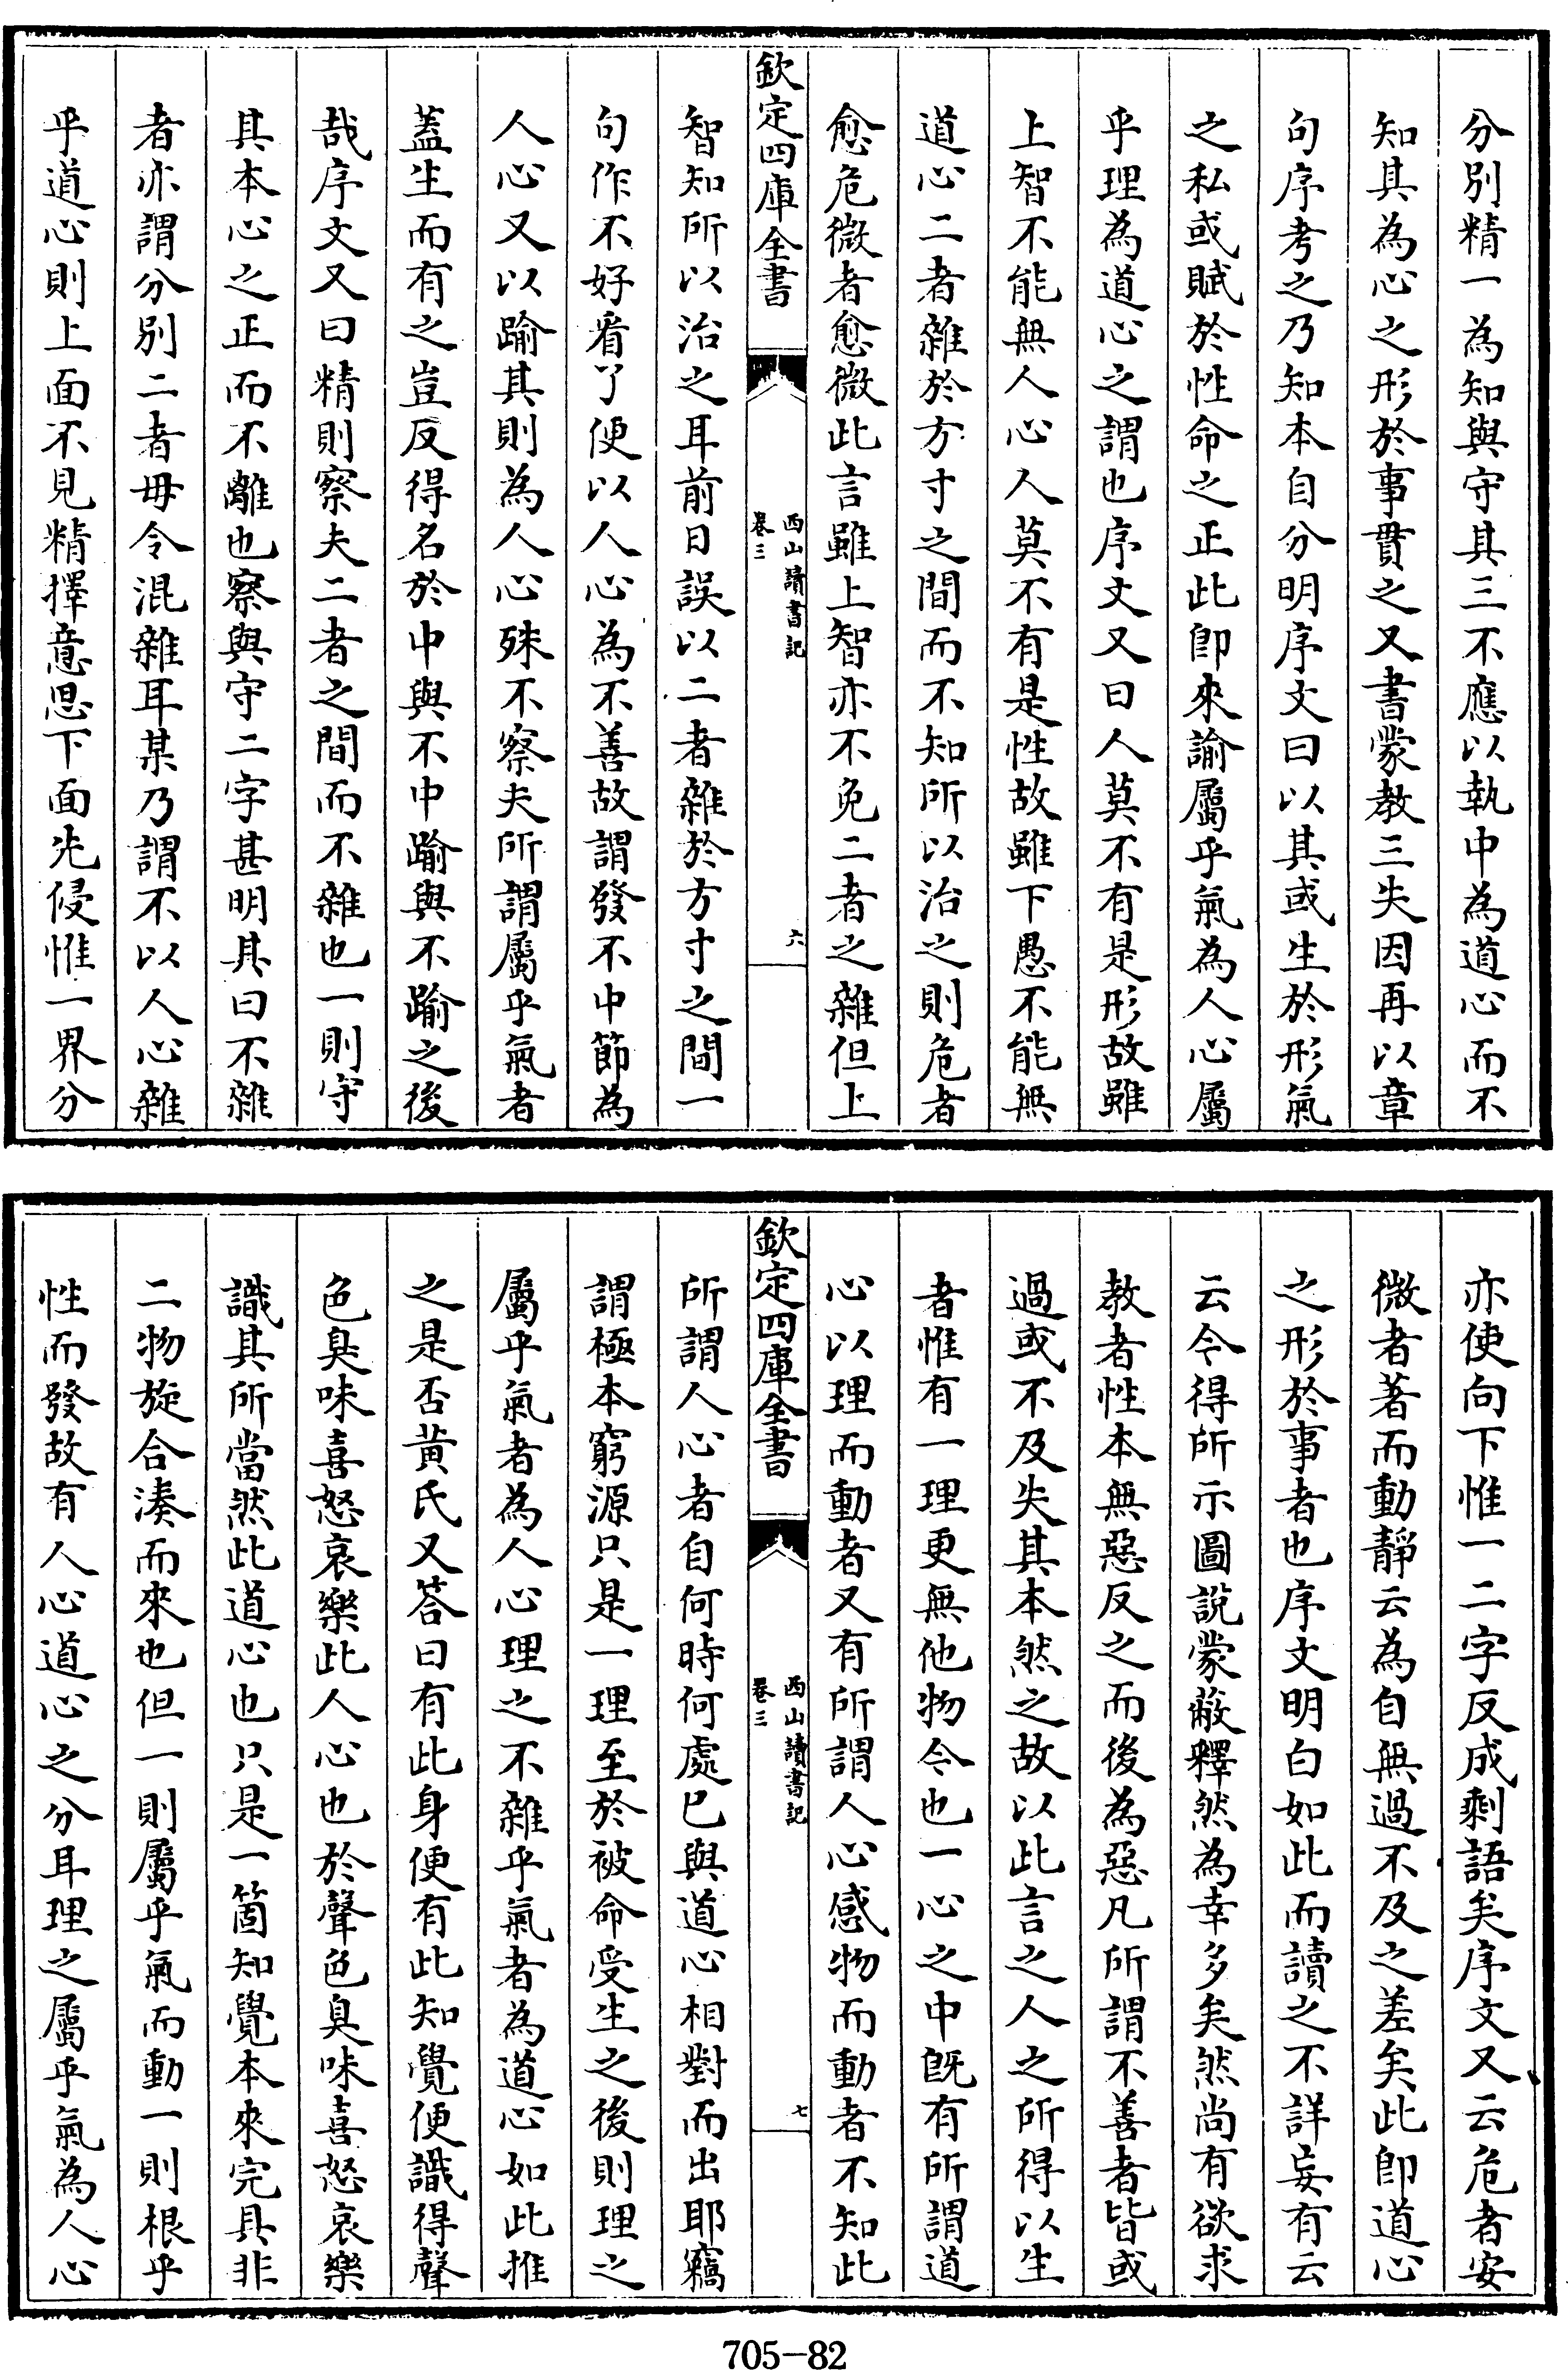 分別精一為知與守其三不應以執中為道心而不
知其為心之形於事貫之又書蒙教三失因再以章
句序考之乃知本自分明序文曰以其或生於形氣
之私或賦於性命之正此即來諭屬乎氣為人心屬
乎理為道心之謂也序文又曰人莫不有是形故雖
上智不能無人心人莫不有是性故雖下愚不能無
道心二者雜於方寸之間而不知所以治之則危者
愈危微者愈微此言雖上智亦不免二者之雜但上
欽定四庫全書
西山讀書記
卷三
六
智知所以治之耳前日誤以二者雜於方寸之間一
句作不好看了便以人心為不善故謂發不中節為
人心又以踰其則為人心殊不察夫所謂屬乎氣者
蓋生而有之豈反得名於中與不中踰與不踰之後
哉序文又曰精則察夫二者之間而不雜也一則守
其本心之正而不離也察與守二字甚明其曰不雜
者亦謂分別二者毋令混雜耳某乃謂不以人心雜
乎道心則上面不見精擇意思下面先侵惟一界分
亦使向下惟一二字反成剩語矣序文又云危者安
微者著而動靜云為自無過不及之差矣此即道心
之形於事者也序文明白如此而讀之不詳妄有云
云今得所示圖說蒙蔽釋然為幸多矣然尚有欲求
教者性本無惡反之而後為惡凡所謂不善者皆或
過或不及失其本然之故以此言之人之所得以生
者惟有一理更無他物今也一心之中既有所謂道
心以理而動者又有所謂人心感物而動者不知此
欽定四庫全書
西山讀書記
卷三
七
所謂人心者自何時何處已與道心相對而出耶竊
謂極本窮源只是一理至於被命受生之後則理之
屬乎氣者為人心理之不雜乎氣者為道心如此推
之是否黃氏又答曰有此身便有此知覺便識得聲
色臭味喜怒哀樂此人心也於聲色臭味喜怒哀樂
識其所當然此道心也只是一箇知覺本來完具非
二物旋合湊而來也但一則屬乎氣而動一則根乎
性而發故有人心道心之分耳理之屬乎氣為人心
705-82